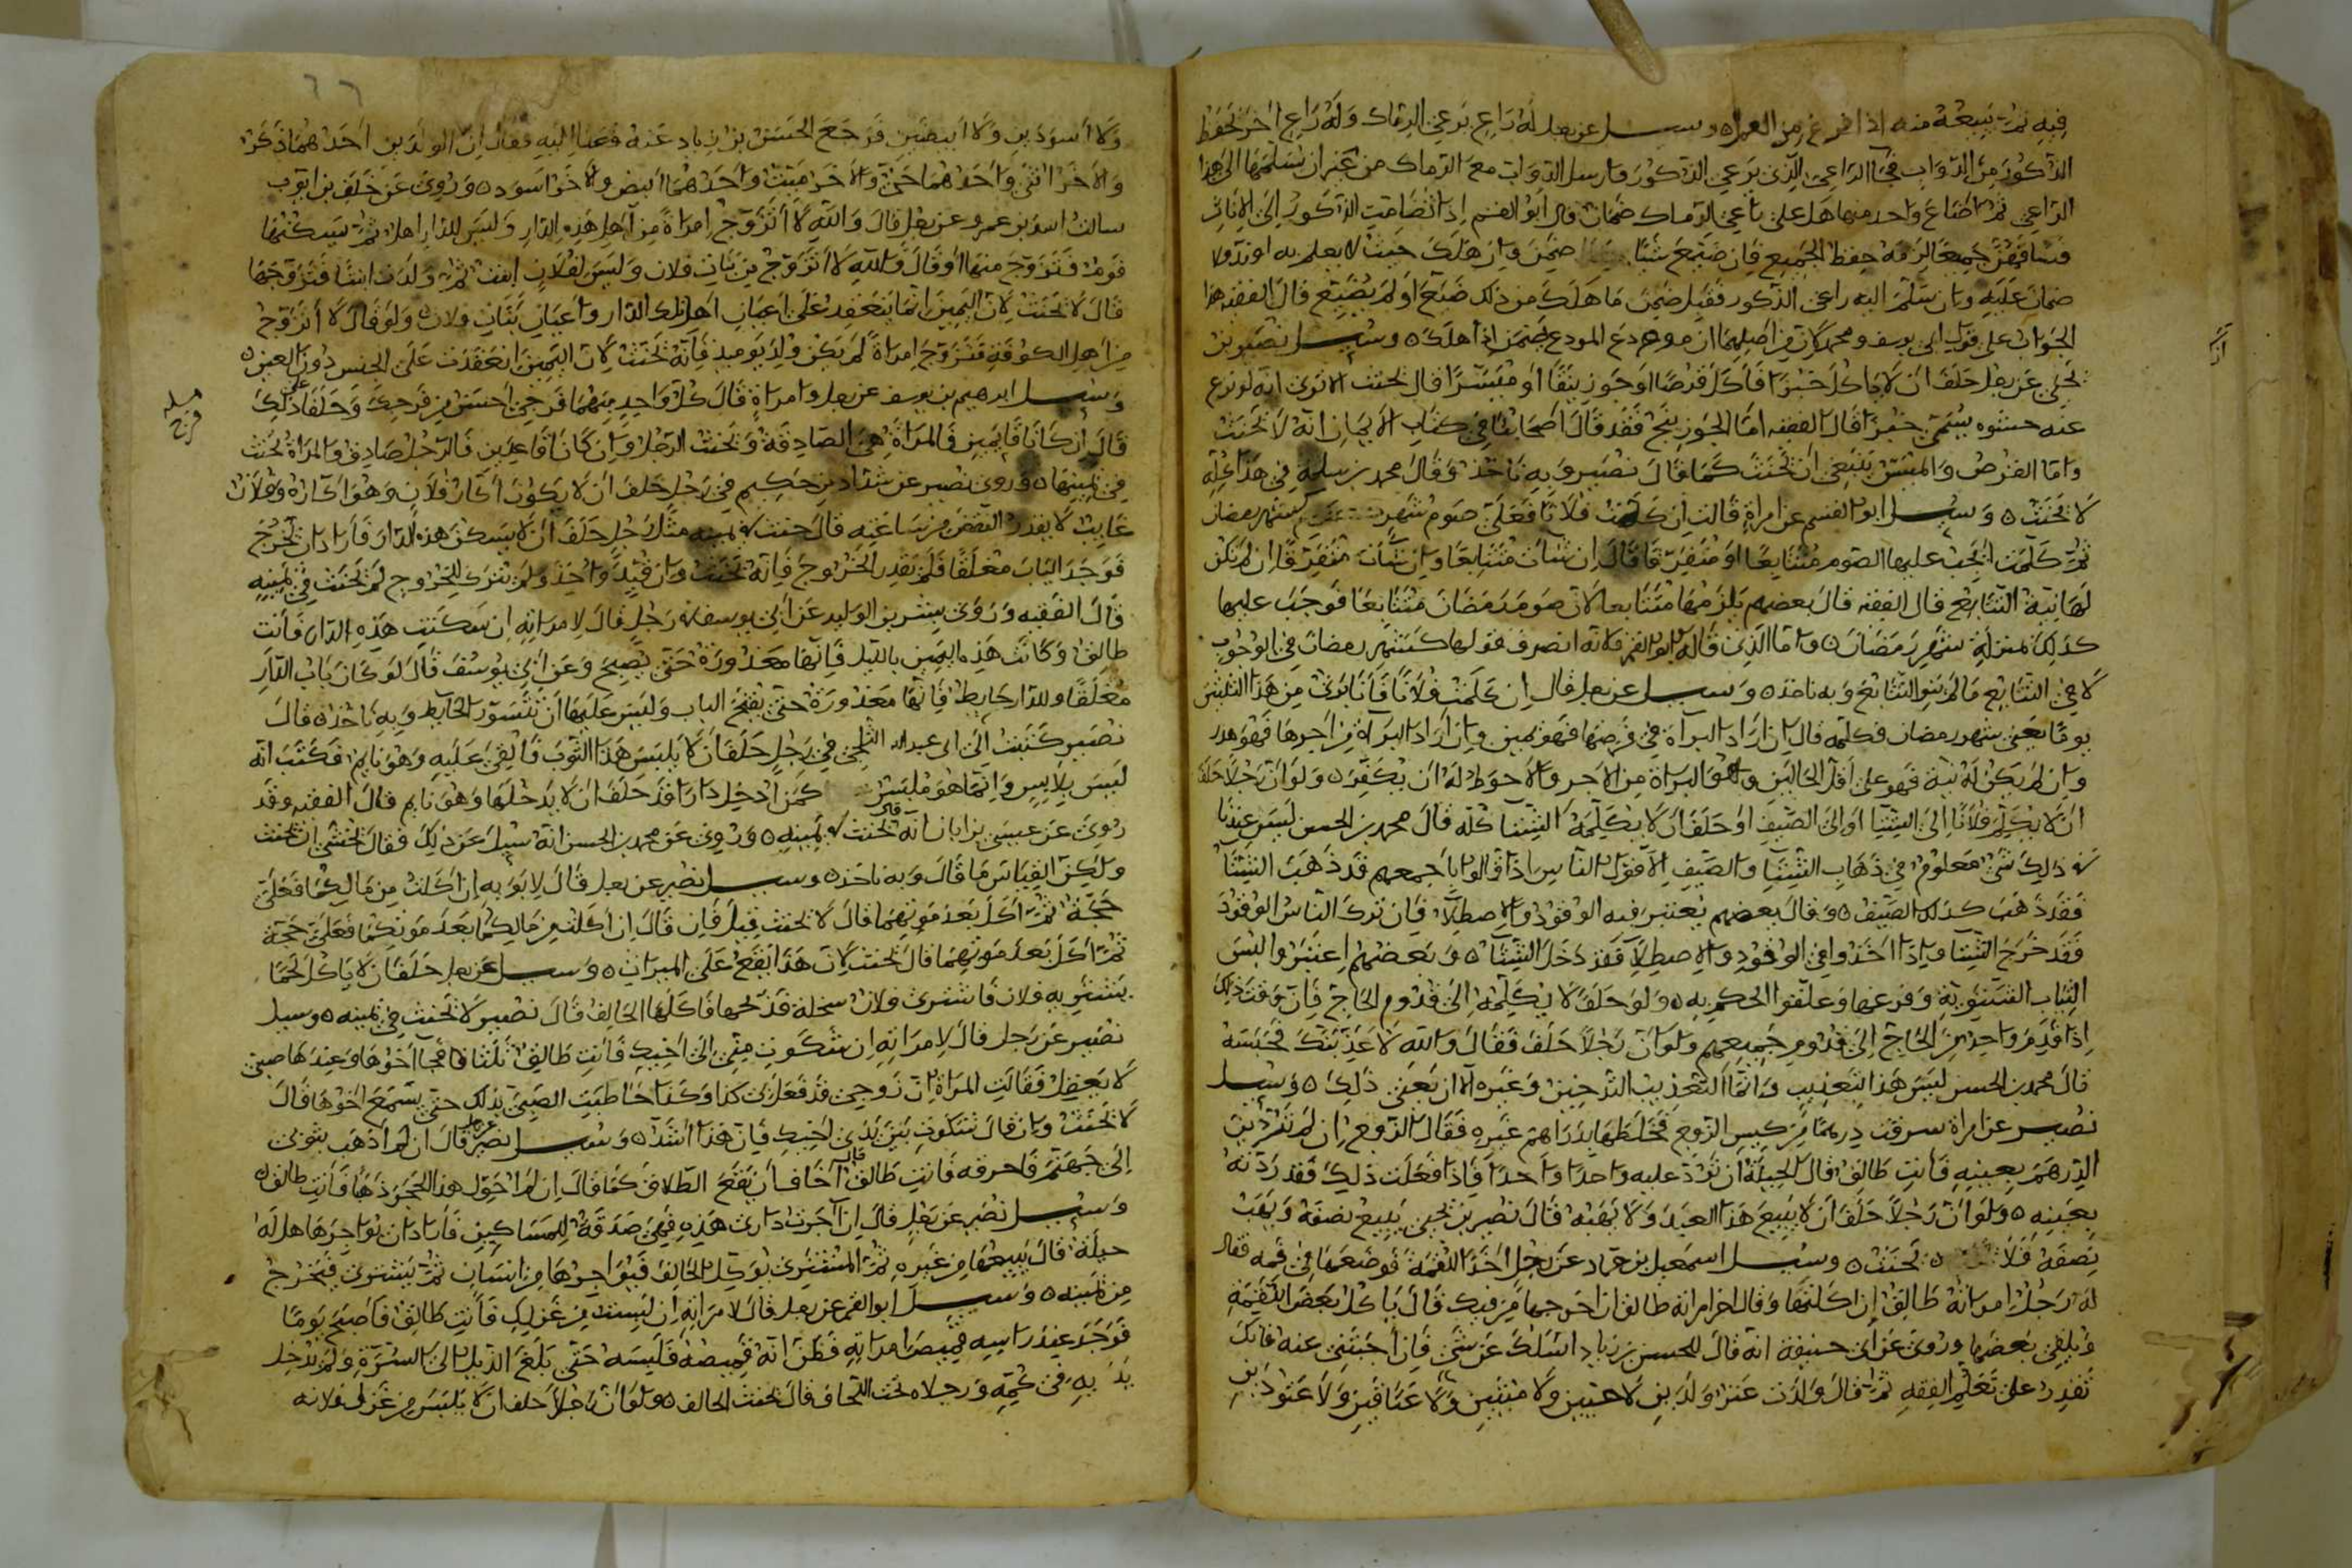 فيه ثم يبيعه منه اذا فرغ من العمل وسيل عن رجل له راع يرعى الرماك وله راع اخر يحفظ
الذكور من الدواب فجا الراعي الذي يرعي الذكور وارسل الدواب مع الرماك من غير ان يسلمها الى هذا
الراعي ثم ضاع واحد منها هل على راعي الرماك ضمان قال ابو القسم اذا انضامت الذكور الى الاناث
فساقهن جميعا لزمه حفظ الجميع فان ضيع شيا ضمن وان هلك حيث لا يعلم به او ند فلا
ضمان عليه وان سلم اليه راعي الذكور فقبل ضمن ما هلك من ذلك ضيع او لم يضيع قال الفقيه هذا
الجواب على قول ابي يوسف ومحمد لان من اصلهما ان مودع المودع يضمن اذا هلك وسيل نصير بن
يحيى عن رجل حلف ان لا ياكل خبزا فاكل قرصا او جوزينقا او ميسرا قال يحنث الا ترى انه لو نزع
عنه حشوه يسمى خبزا قال الفقيه اما الجوزينج فقد قال اصحابنا في كتاب الايمان انه لا يحنث
واما القرص والميسر ينبغي ان يحنث كما قال نصير وبه ناخذ وقال محمد بن سلمة في هذا كله
لا يحنث وسيل ابو القسم عن امراة قالت ان كلمت فلانا فعلي صوم شهر كشهر رمضان
ثم كلمت ايجب عليها الصوم متتابعا او متفرقا قال ان شات متتابعا وان شات متفرقا ان لم يكن
لها نية التتابع قال الفقيه قال بعضهم يلزمها متتابعا لان صوم رمضان متتابعا فوجب عليها
كذلك بمنزلة شهر رمضان واما الذي قاله ابو القسم فلانه انصرف قولها كشهر رمضان في الوجوب
لا في التتابع ما لم ينو التتابع وبه ناخذ وسيل عن رجل قال ان كلمت فلانا فانا برئ من هذا الثلثين
يوما يعني شهر رمضان فكلمه قال ان اراد البراة في فرضها فهو يمين وان اراد البراة من اجرها فهو هدر
وان لم يكن له نية فهو على اقل الحالين وهو البراة من الاجر والاحوط له ان يكفر ولو ان رجلا حلف
ان لا يكلم فلانا الى الشتا او الى الصيف او حلف ان لا يكلمه الشتا كله قال محمد بن الحسن ليس عندنا
في ذلك شئ معلوم في ذهاب الشتا والصيف الا قول الناس اذا قالوا باجمعهم قد ذهب الشتا
فقد ذهب كذلك الصيف وقال بعضهم يعتبر فيه الوقود والاصطلا فان ترك الناس الوقود
فقد خرج الشتا واذا اخذوا في الوقود والاصطلا فقد دخل الشتا وبعضهم اعتبروا لبس
الثياب الشتوية وفرغها وعلقوا الحكم به ولو حلف لا يكلمه الى قدوم الحاج فان وقت ذلك
اذا قدم واحد من الحاج الى قدوم جميعهم ولو ان رجلا حلف فقال والله لا عذبنك فحبسه
قال محمد بن الحسن ليس هذا بتعذيب وانما التعذيب الترحين وغيره الا ان يعني ذلك وسيل
نصير عن امراة سرقت درهما من كيس الزوج فخلطها بدراهم غيره فقال الزوج ان لم تردين
الدرهم بعينه فانت طالق قال الحيلة ان ترد عليه واحدا واحدا فاذا فعلت ذلك فقد ردته
بعينه ولو ان رجلا حلف ان لا يبيع هذا العبد ولا يهبه قال نصير بن يحيى يبيع نصفه ويهب
نصفه فلا يحنث وسيل اسمعيل بن حماد عن رجل اخذ اللقمة فوضعها في فمه فقال
له رجل امراته طالق ان اكلتها وقال اخر امراته طالق ان اخرجها من فيك قال ياكل بعض اللقمة
ويلقي بعضها وروى عن ابي حنيفة انه قال للحسن بن زياد اسئلك عن شئ فان اجبتني عنه فانك
تقدر على تعلم الفقه ثم قال ولدت عنز ولدين لا حيين ولا ميتين ولا عناقين ولا عتودين
ارا
٦٦
ولا اسودين ولا ابيضين فرجع الحسن بن زياد عنه فعاد اليه فقال ان الولدين احدهما ذكر
والاخر انثى واحدهما حي والاخر ميت واحدهما ابيض والاخر اسود وروى عن خلف بن ايوب
سالت اسد بن عمرو عن رجل قال والله لا اتزوج امراة من اهل هذه الدار وليس للدار اهل ثم سكنها
قوم فتزوج منها او قال والله لا اتزوج من بنات فلان وليس لفلان ابنت ثم ولدت ابنتا فتزوجها
قال لا يحنث لان اليمين انما ينعقد على اعيان اهل تلك الدار واعيان بنات فلان ولو قال لا اتزوج
من اهل الكوفة فتزوج امراة لم يكن ولد يوميذ فانه يحنث لان اليمين انعقدت على الجنس دون العين
وسيل ابرهيم بن يوسف عن رجل وامراة قال كل واحد منهما فرجي احسن من فرجك وحلفا على ذلك
قال ان كانا قايمين فالمراة هي الصادقة ويحنث الرجل وان كانا قاعدين فالرجل صادق والمراة يحنث
في يمينها وروى نصير عن شداد بن حكيم في رجل حلف ان لا يكون اكار فلان وهو اكاره وفلان
غايب لا يقدر النقض من ساعته قال حنث في يمينه مثل رجل حلف ان لا يسكن هذه الدار فاراد ان يخرج
فوجد الباب مغلقا فلم يقدر الخروج فانه يحنث وان قيد واخذ ولم يترك للخروج لم يحنث في يمينه
قال الفقيه وروى بشر بن الوليد عن ابي يوسف في رجل قال لامراته ان سكنت هذه الدار فانت
طالق وكانت هذه اليمين بالليل فانها معذورة حتى يصبح وعن ابي يوسف قال لو كان باب الدار
مغلقا وللدار حايط فانها معذورة حتى يفتح الباب وليس عليها ان تتسور الحايط وبه ناخذ قال
نصير كتبت الى ابي عبد الله الثلجي في رجل حلف ان لا يلبس هذا الثوب فالقي عليه وهو نايم فكتب انه
ليس بلابس وانما هو ملبس كمن ادخل دارا قد حلف ان لا يدخلها وهو نايم قال الفقيه وقد
روى عن عيسى بن ابان انه قال يحنث في يمينه وروى عن محمد بن الحسن انه سيل عن ذلك فقال اخشى ان يحنث
ولكن القياس ما قال وبه ناخذ وسيل نصير عن رجل قال لابويه ان اكلت من مالكما فعلي
حجة ثم اكل بعد موتهما قال لا يحنث قيل فان قال ان اكلت من مالكما بعد موتكما فعلي حجة
ثم اكل بعد موتهما قال يحنث لان هذا يقع على الميراث وسيل عن رجل حلف ان لا ياكل لحما
يشتريه فلان فاشترى فلان سخلة فذبحها فاكلها الحالف قال نصير لا يحنث في يمينه وسيل
نصير عن رجل قال لامراته ان شكوت مني الى اخيك فانت طالق ثلثا فجا اخوها وعندها صبي
لا يعقل فقالت المراة ان زوجي قد فعل بي كذا وكذا خاطبت الصبي بذلك حتى يسمع اخوها قال
لا يحنث وان قال تشكوت بين يدي اخيك فان هذا اشد وسيل نصير عن رجل قال ان لم اذهب بثوبي
الى جهنم فاحرقه فانت طالق قال اخاف ان يقع الطلاق كما قال ان لم احول هذا الحجر ذهبا فانت طالق
وسيل نصير عن رجل قال ان اجرت داري هذه فهي صدقة للمساكين فاراد ان يواجرها هل له
حيلة قال يبيعها من غيره ثم المشتري يوكل الحالف فيواجرها من انسان ثم يشتري فيخرج
من يمينه وسيل ابو القسم عن رجل قال لامراته ان لبست من غزلك فانت طالق فاصبح يوما
فوجد عند راسه قميص امراته فظن انه قميصه فلبسه حتى بلغ الذيل الى السرة ولم يدخل
يديه في كميه ورجلاه تحت اللحاف قال يحنث الحالف ولو ان رجلا حلف ان لا يلبس من غزل فلانه
مسلة فرج